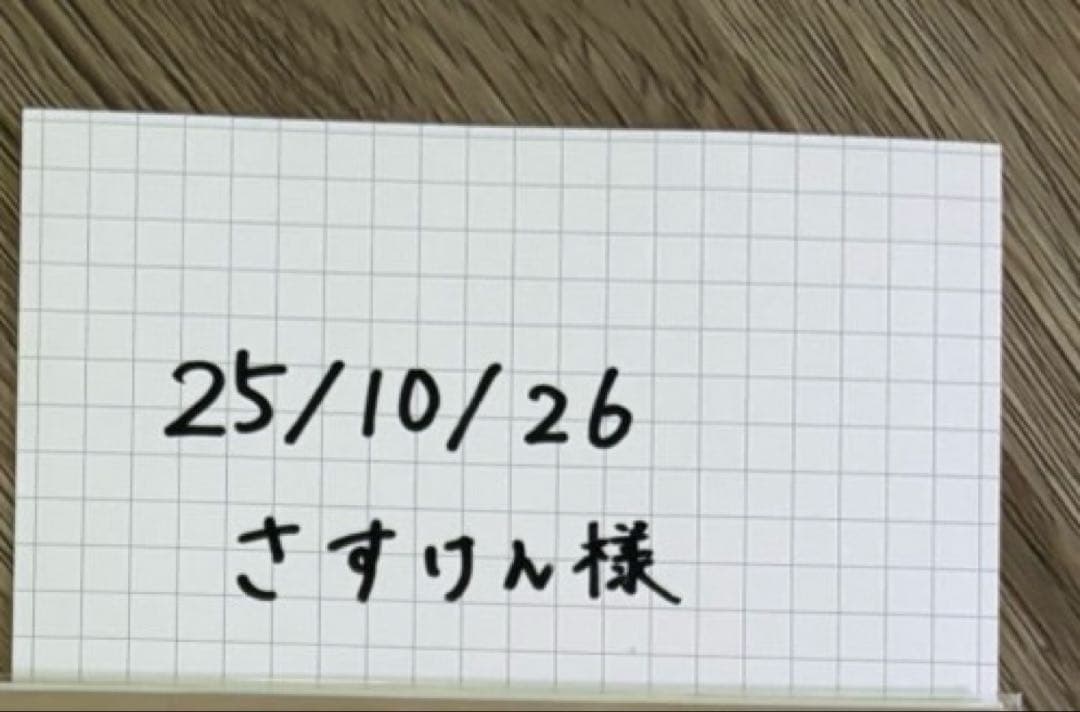 25/10/26
さすけん様